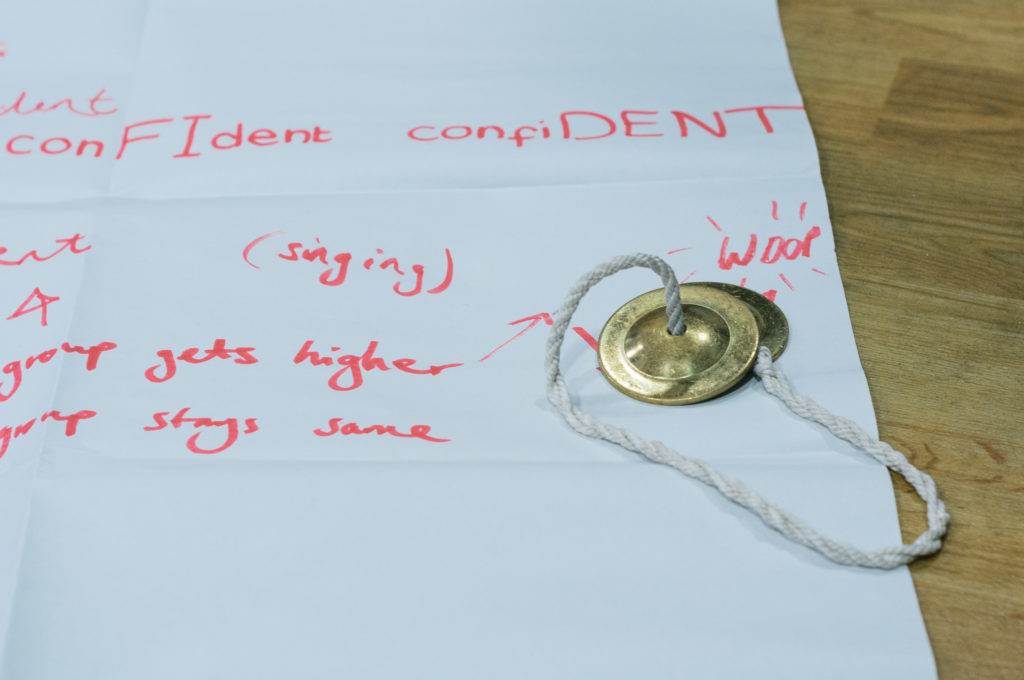 conFIdent confiDENT
(singing)
WOOP
group gets higher
group stays same